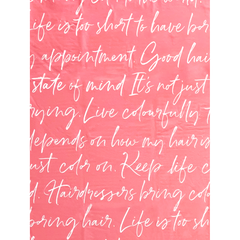 Life is too short to have bor
appointment. Good hai
state of mind It's not just
rying. Live colourfully t
depends on how my hair is
ust color on. Keep life c
d. Hairdressers bring colo
boring hair. Life is too sh